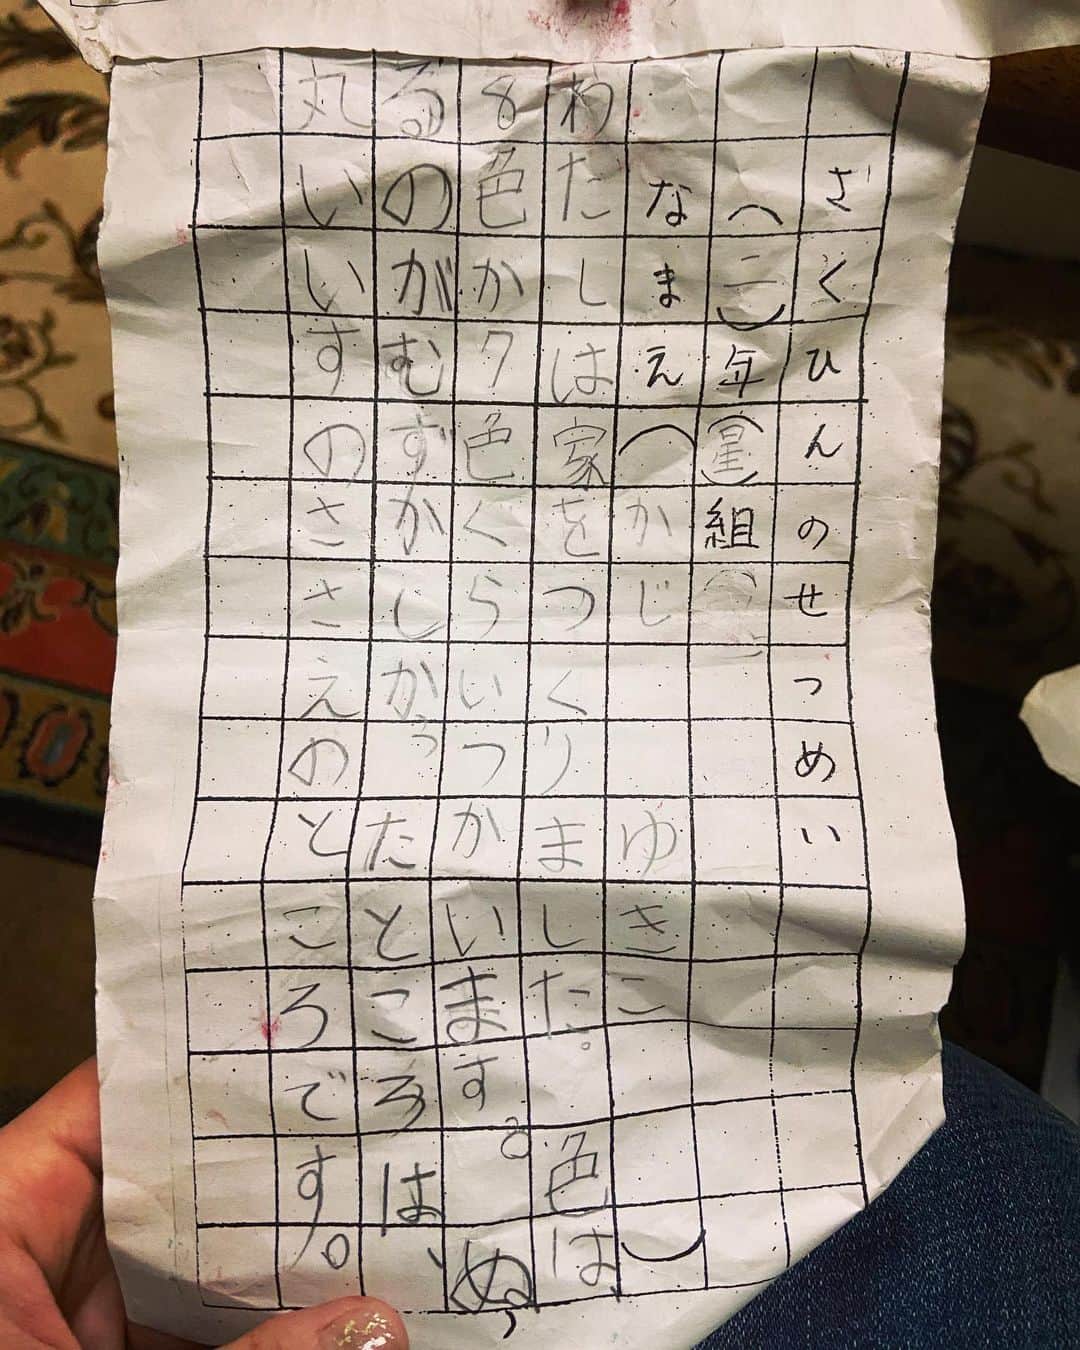 ざくひんのせつめい
(二)年(星)組
なまえ(かじ ゆきこ)
わたしは家をつくりました。色は、
8色か7色くらいつかいます。ぬ
るのがむずかしかったところは、
丸いいすのささえのところです。